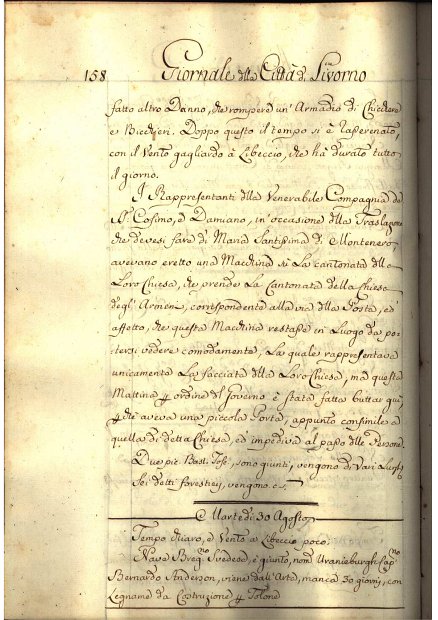 158 Giornale della Città di Livorno
fatto altro Danno, che rompere un' Armadio di Chicchere
e Bicchieri. Doppo questo il tempo si è rasserenato,
con il Vento gagliardo à Libeccio, che hà durato tutto
il giorno.
I Rappresentanti della Venerabile Compagnia de
Sti. Cosimo, e Damiano, in occasione della Traslazione
che devesi fare di Maria Santissima di Montenero,
avevano eretto una Macchina sù La cantonata della
Loro Chiesa, che prende La Cantonata della Chiesa
degl' Armeni, corrispondente alla via della Posta, ed
affetto, che questa Macchina restasse in Luogo da po-
tersi vedere comodamente, La quale rappresentava
unicamente La facciata della Loro Chiesa, ma questa
Mattina p ordine del Governo è stata fatta buttar giù,
p che aveva una piccola Porta, appunto consimile a
quella di detta Chiesa, ed impediva al passo delle Persone.
Due pic. Bast. Tosc., sono giunti, vengono di Vari Luoghi
Sei detti forestieri, vengono c. s.
Martedì 30 Agosto
Tempo chiaro, e Vento a Libeccio poco.
Nave Breg.no Svedese, è giunto, nom. Uranieburgh Cap.no
Bernardo Anderson, viene dall' Arta, manca 30 giorni, con
Legname da Costruzione p Tolone